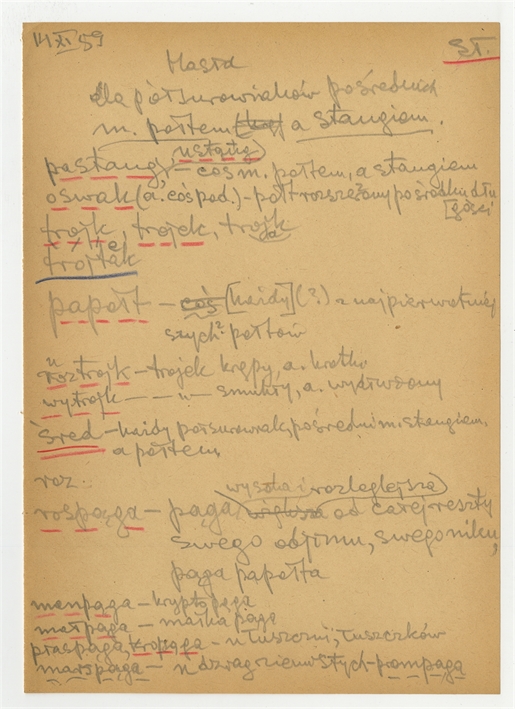 14 XI 59
Sł.
Hasła
dla półsurowiaków pośrednich
m. połtem a stangiem.
pastang, ustang) – coś m. połtem, a stangiem
oswak (a. coś pod.) – połt rozszerzony pośrodku dłu
[gości
trojk, trojek, trojk
trojtak
papołt – coś [każdy] (?) z najpierwotniej
szych połtów
roztrojk – trojek krępy, a. krótko
wytrojk – – „ – smukły, a. wydłużony
śred – każdy półsurowiak, pośredni m. stangiem,
a połtem.
roz
wysoka i rozleglejsza
rospąga – pąga większa od całej reszty
swego odjimu, swego niku,
pąga papołta
mompąga – kryptopąga
małpąga – małka pąga
praspąga, kropąga – u łuszczni, łuszczków
marspąga – u dzwagrzieniowstych – prompąga